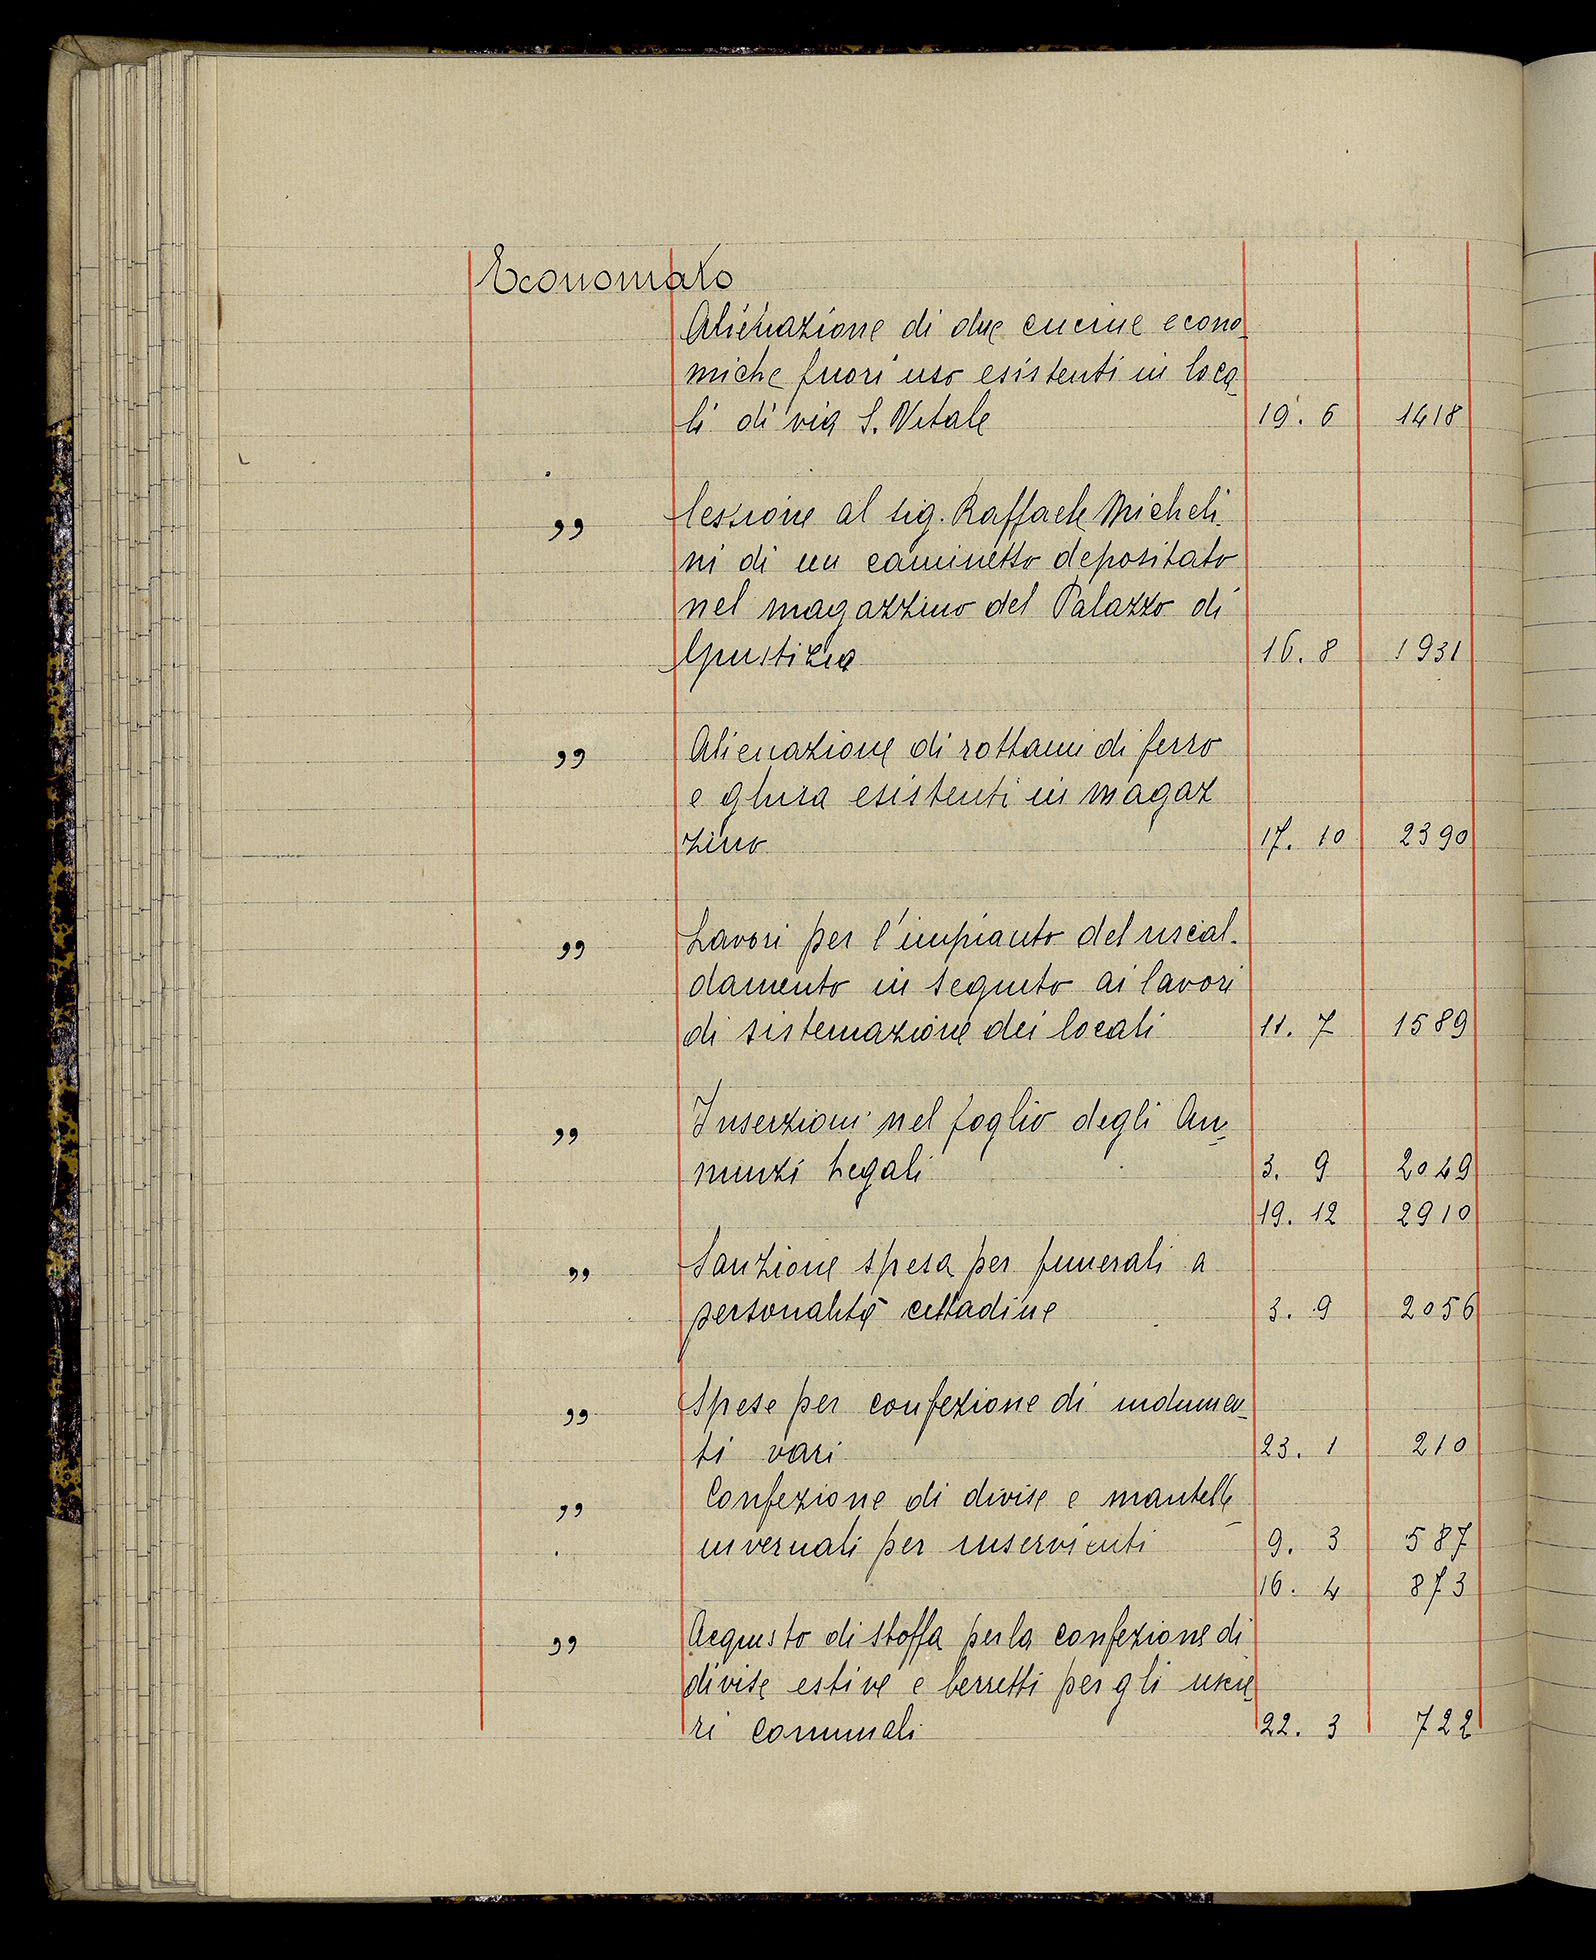 Economato
Alienazione di due cucine econo-
miche fuori uso esistenti in loca-
li di via S. Vitale 19. 6 1418
" Cessione al sig. Raffaele Micheli-
ni di un caminetto depositato
nel magazzino del Palazzo di
Giustizia 16. 8 1931
" Alienazione di rottami di ferro
e ghisa esistenti in magaz
zino 17. 10 2390
" Lavori per l'impianto del riscal-
damento in seguito ai lavori
di sistemazione dei locali 11. 7 1589
" Inserzioni nel foglio degli An-
nunzi Legali 3. 9 2049
19. 12 2910
" Sanzione spesa per funerali a
personalità cittadine 3. 9 2056
" Spese per confezione di indumen-
ti vari 23. 1 210
" Confezione di divise e mantelle
invernali per inservienti 9. 3 587
16. 4 873
" Acquisto di stoffa per la confezione di
divise estive e berretti per gli uscie
ri comunali 22. 3 722